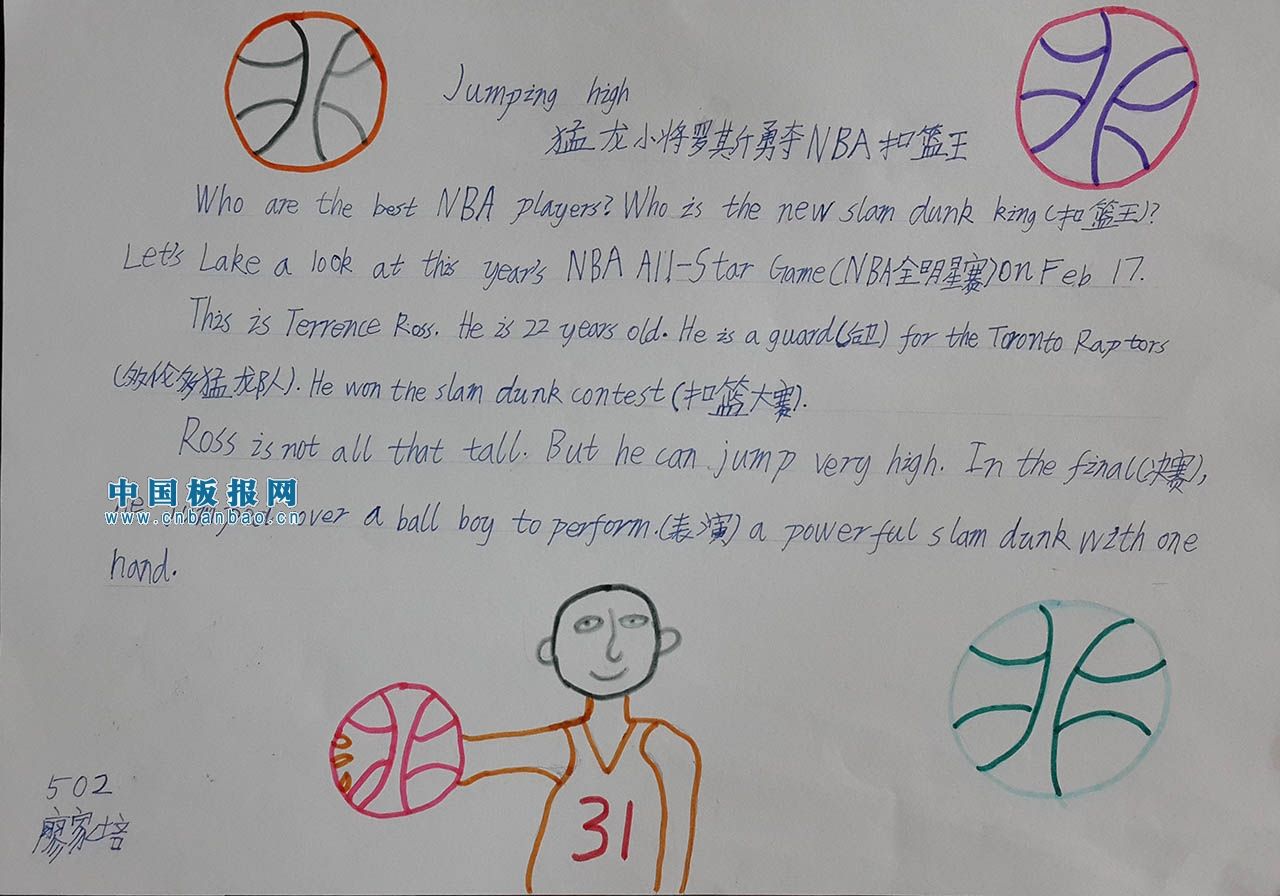 Jumping high
猛龙小将罗斯勇夺NBA扣篮王
Who are the best NBA players? Who is the new slam dunk king(扣篮王)?
Let's Lake a look at this year's NBA All-Star Game(NBA全明星赛)on Feb 17.
This is Terrence Ross. He is 22 years old. He is a guard(后卫) for the Toronto Raptors
(多伦多猛龙队). He won the slam dunk contest (扣篮大赛).
Ross is not all that tall. But he can jump very high. In the final(决赛),
中国板报网
www.cnbanbao.cn
he over a ball boy to perform.(表演) a powerful slam dunk with one
hand.
31
502
廖家培